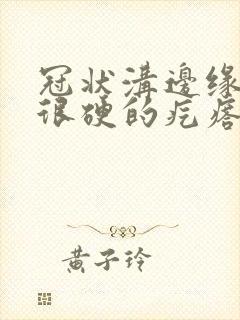 冠状溝邊缘
很硬的疙瘩
黄子玲